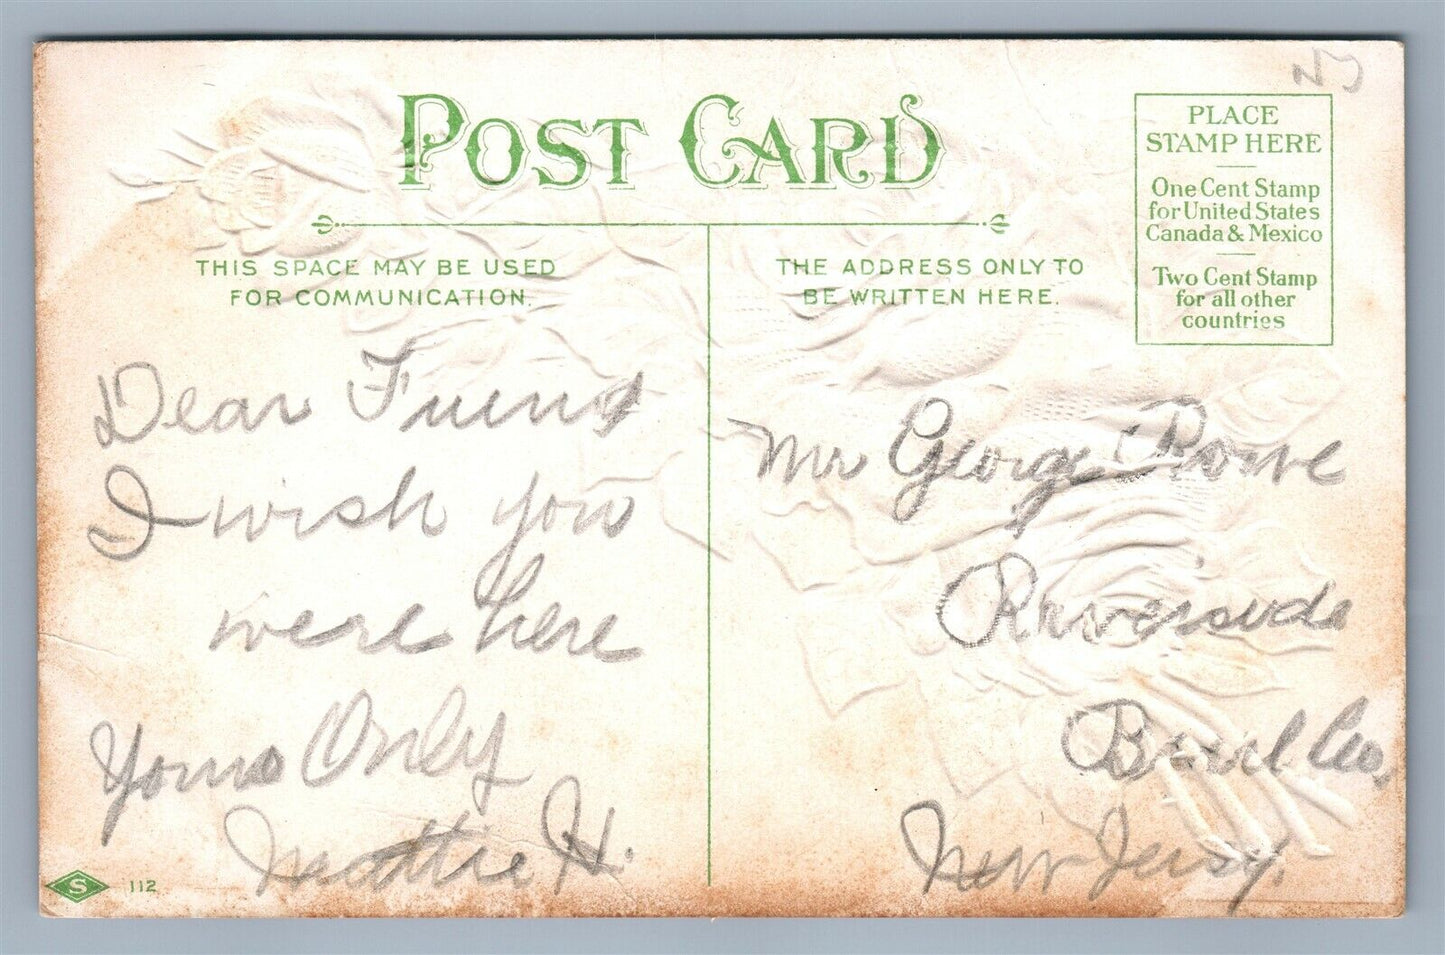 POST CARD
PLACE
STAMP HERE
One Cent Stamp
for United States
Canada & Mexico
Two Cent Stamp
for all other
countries
THIS SPACE MAY BE USED
FOR COMMUNICATION.
Dear Friend
I wish you
were here
Yours Only
Mattie H.
THE ADDRESS ONLY TO
BE WRITTEN HERE.
Mr George Rowe
Riverside
Co,
New Jersy.
S 112